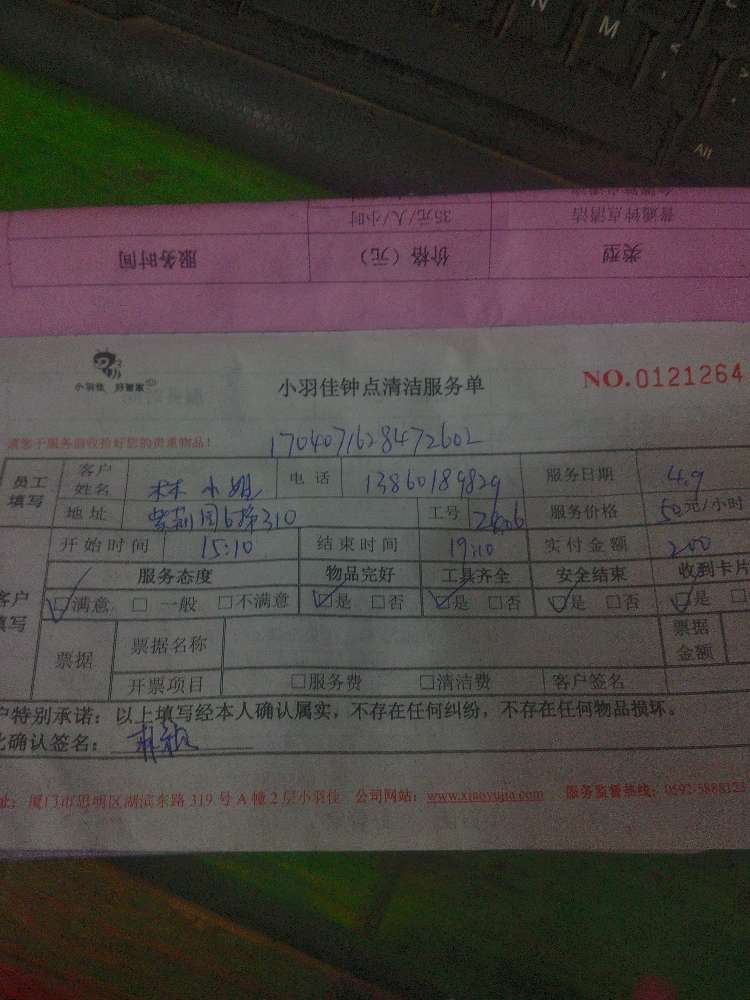 N
M
Alt
普通钟点清洁 35元/人/小时
类型 价格（元） 服务时间
小羽佳 好管家
小羽佳钟点清洁服务单
NO.0121264
请您于服务前收拾好您的贵重物品！
1704071628472602
员工填写 客户姓名 林小姐 电话 13860189829 服务日期 4.9
地址 6栋310 工号 服务价格 50元/小时
开始时间 15:10 结束时间 19:10 实付金额 200
服务态度 物品完好 工具齐全 安全结束 收到卡片
客户填写 ☑满意 □一般 □不满意 ☑是 □否 ☑是 □否 ☑是 □否 ☑是 □
票据 票据名称 票据金额
开票项目 □服务费 □清洁费 客户签名
户特别承诺：以上填写经本人确认属实，不存在任何纠纷，不存在任何物品损坏。
此确认签名：
址：厦门市思明区湖滨东路319号A幢2层小羽佳 公司网站：www.xiaoyujia.com 服务监督热线：0592-5888123